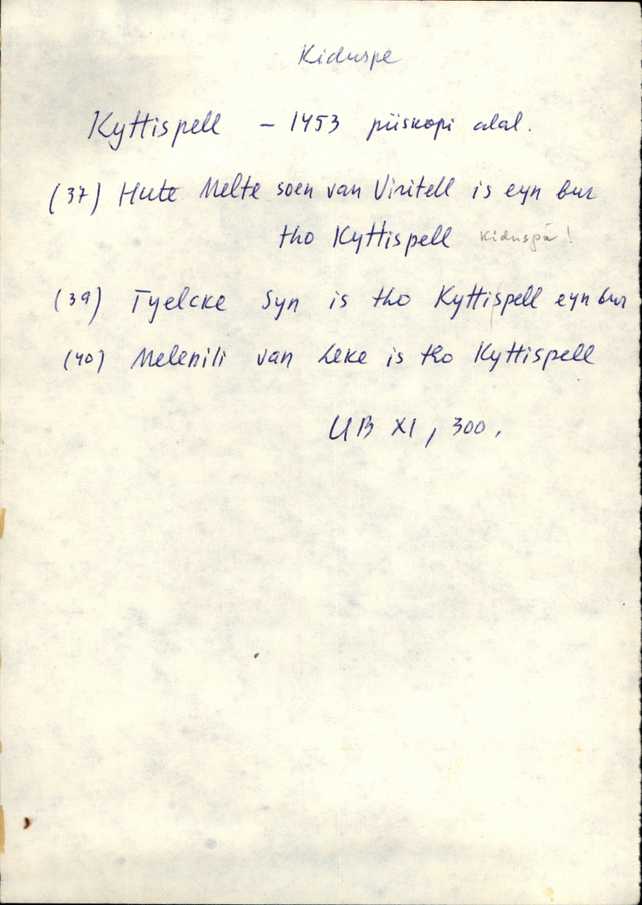 Kiduspe
Kyttispell – 1453 piiskopi alal.
(37) Hute Melte soen van Viritell is eyn bur
tho Kyttispell Kiduspä!
(39) Tyelcke Syn is tho Kyttispell eyn bur
(40) Melenili van Leke is tho Kyttispell
UB XI, 300.